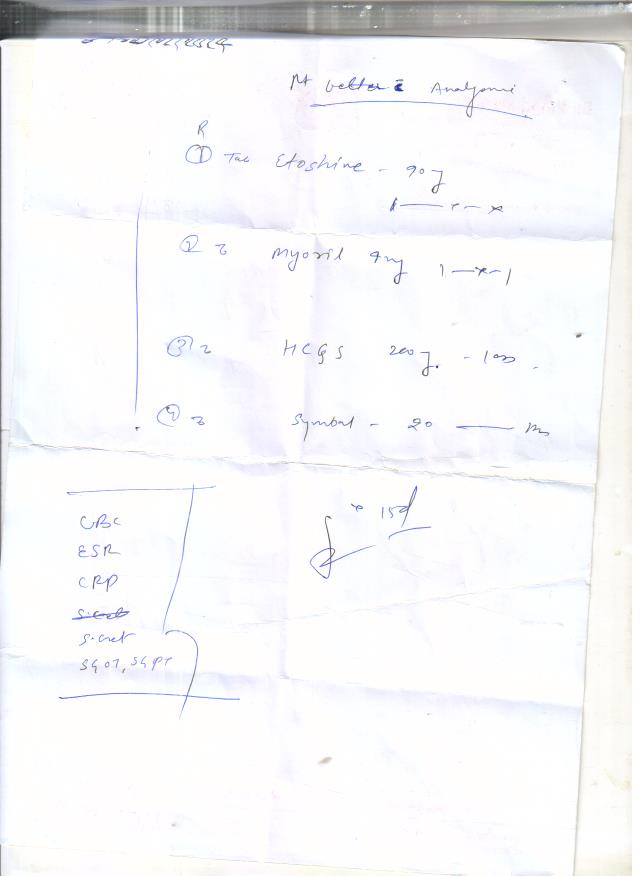 Pt better c̄ Analgesic
R
① Tab Etoshine - 90
1 — x — x
② Myoril 4mg 1 — x — 1
③ HCQS 200 -
④ Symbal - 20 ——
x 15d
CBC
ESR
CRP
S. creat
SGOT, SGPT